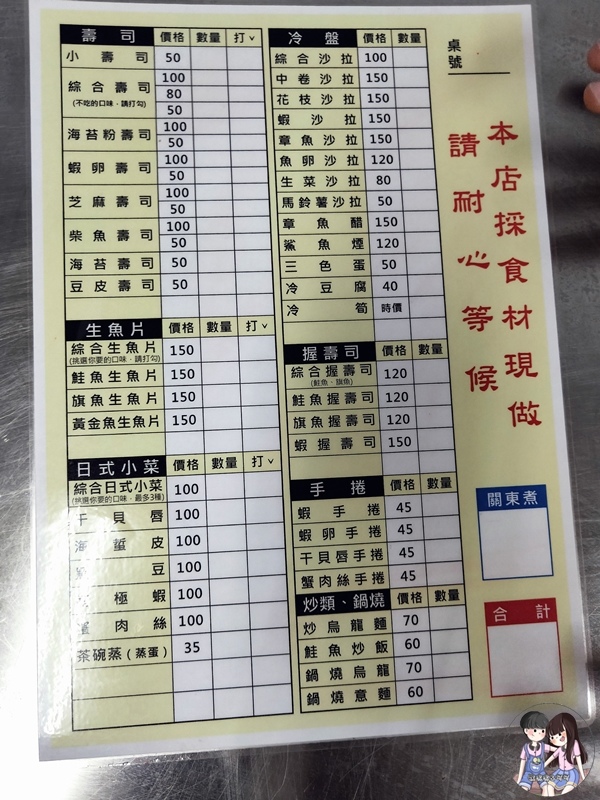 壽司 價格 數量 打ˇ
小壽司 50
綜合壽司 100
(不吃的口味，請打勾) 80
50
海苔粉壽司 100
50
蝦卵壽司 100
50
芝麻壽司 100
50
柴魚壽司 100
50
海苔壽司 50
豆皮壽司 50
生魚片 價格 數量 打ˇ
綜合生魚片 150
(挑選你要的口味，請打勾)
鮭魚生魚片 150
旗魚生魚片 150
黃金魚生魚片 150
日式小菜 價格 數量 打ˇ
綜合日式小菜 100
(挑選你要的口味，最多3種)
干貝唇 100
海蜇皮 100
豆 100
極蝦 100
蟹肉絲 100
茶碗蒸(蒸蛋) 35
冷盤 價格 數量
綜合沙拉 100
中卷沙拉 150
花枝沙拉 150
蝦沙拉 150
章魚沙拉 150
魚卵沙拉 120
生菜沙拉 80
馬鈴薯沙拉 50
章魚醋 150
鯊魚煙 120
三色蛋 50
冷豆腐 40
冷筍 時價
握壽司 價格 數量
綜合握壽司 120
(鮭魚、旗魚)
鮭魚握壽司 120
旗魚握壽司 120
蝦握壽司 150
手捲 價格 數量
蝦手捲 45
蝦卵手捲 45
干貝唇手捲 45
蟹肉絲手捲 45
炒類、鍋燒 價格 數量
炒烏龍麵 70
鮭魚炒飯 60
鍋燒烏龍 70
鍋燒意麵 60
桌號
本店採食材現做
請耐心等候
關東煮
合計